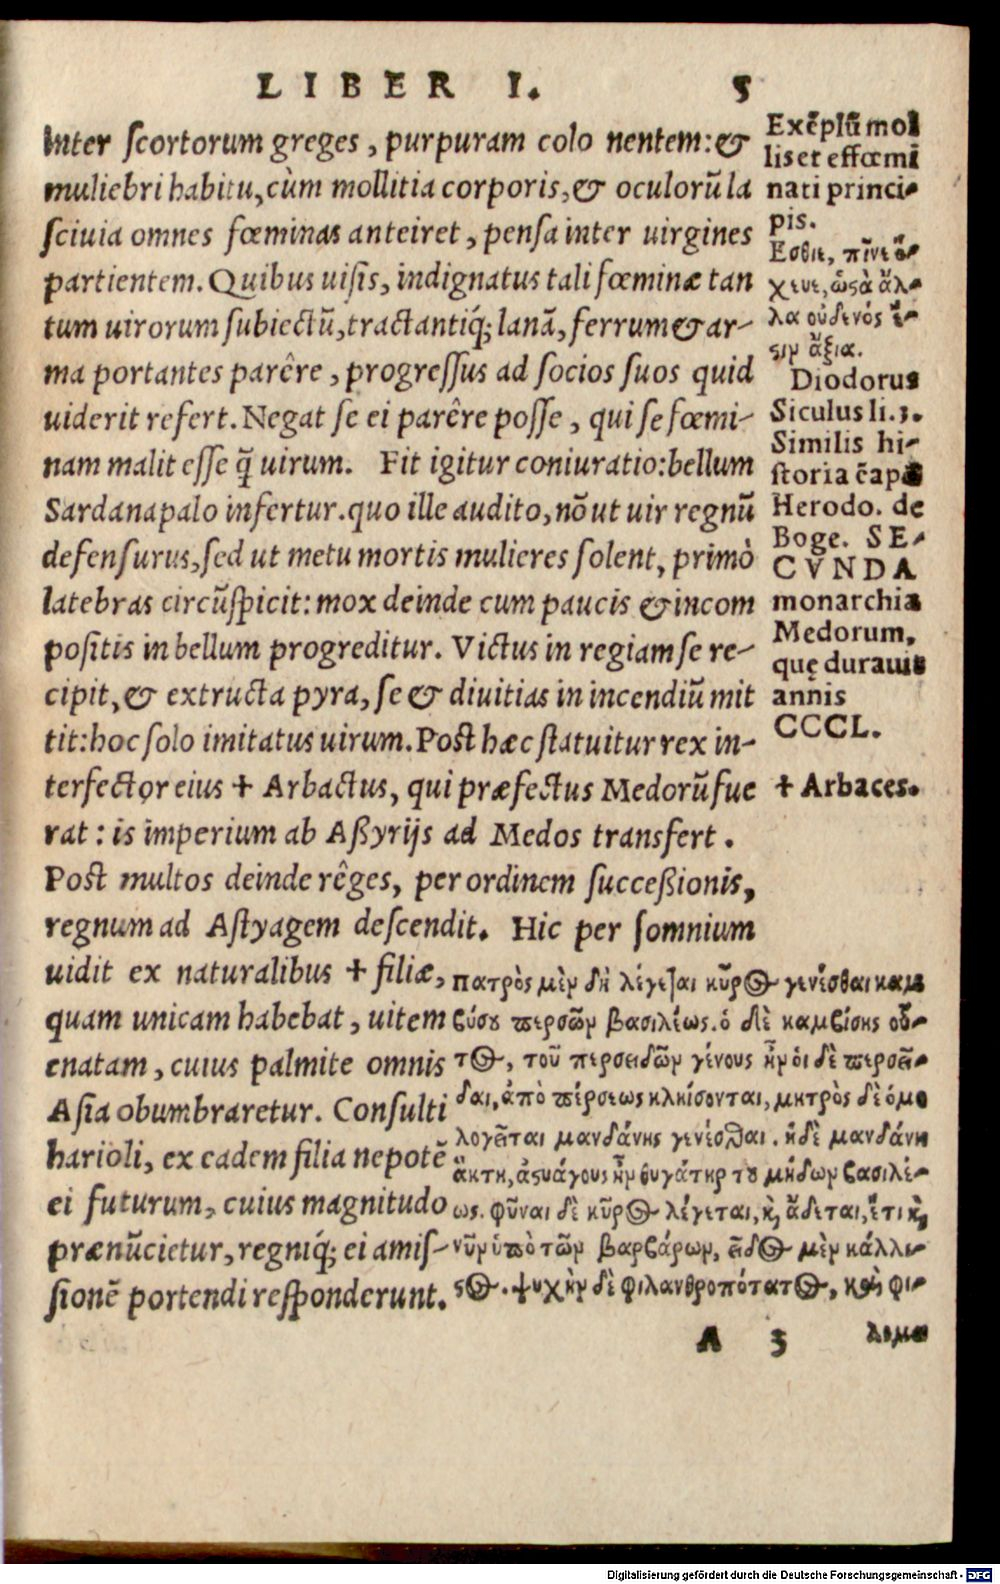 LIBER I. 5
inter scortorum greges, purpuram colo nentem: &
muliebri habitu, cùm mollitia corporis, & oculorū la
sciuia omnes fœminas anteiret, pensa inter uirgines
partientem. Quibus uisis, indignatus tali fœminæ tan
tum uirorum subiectū, tractantiq́; lanā, ferrum & ar-
ma portantes parêre, progressus ad socios suos quid
uiderit refert. Negat se ei parêre posse, qui se fœmi-
nam malit esse q̃ uirum. Fit igitur coniuratio: bellum
Sardanapalo infertur. quo ille audito, nō ut uir regnū
defensurus, sed ut metu mortis mulieres solent, primò
latebras circūspicit: mox deinde cum paucis & incom
positis in bellum progreditur. Victus in regiam se re-
cipit, & extructa pyra, se & diuitias in incendiū mit
tit: hoc solo imitatus uirum. Post hæc statuitur rex in-
terfector eius + Arbactus, qui præfectus Medorū fue
rat: is imperium ab Aßyrijs ad Medos transfert.
Post multos deinde rêges, per ordinem succeßionis,
regnum ad Astyagem descendit. Hic per somnium
uidit ex naturalibus + filiæ,
quam unicam habebat, uitem
enatam, cuius palmite omnis
Asia obumbraretur. Consulti
harioli, ex eadem filia nepotē
ei futurum, cuius magnitudo
prænūcietur, regniq́; ei amis-
sionē portendi responderunt.
Exēplū mol
lis et effœmi
nati princi-
pis.
Εσθιε, πῖνε ὄ-
χευε, ὡς ἀ ἄλ-
λα οὐδενός ἔ-
ςιν ἄξια.
Diodorus
Siculus li. 3.
Similis hi-
storia ē apd
Herodo. de
Boge. SE-
CVNDA
monarchia
Medorum,
quę durauit
annis
CCCL.
+ Arbaces.
πατρὸς μὲν δὴ λέγεται κῦρος γενέσθαι καμ
βύσου περσῶν βασιλέως. ὁ δὲ καμβίσης οὗ-
τος, τοῦ περσειδῶν γένους ἦν οἱ δὲ περσεῖ-
δαι, ἀπὸ πέρσεως κληίσονται, μητρὸς δὲ ὁμο
λογεῖται μανδάνης γενέσθαι. ἡ δὲ μανδάνη
ἅυτη, ἀςυάγους ἦν θυγάτηρ του μήδων βασιλέ-
ως. φῦναι δὲ κῦρος λέγεται, κ̀ ἄδεται, ἔτι κ̀
νῦν ὑπὸ τῶν βαρβάρων, εἶδος μὲν κάλλι-
ςος. ψυχὴν δὲ φιλανθροπότατος, καὶ φι-
A 3 λομα